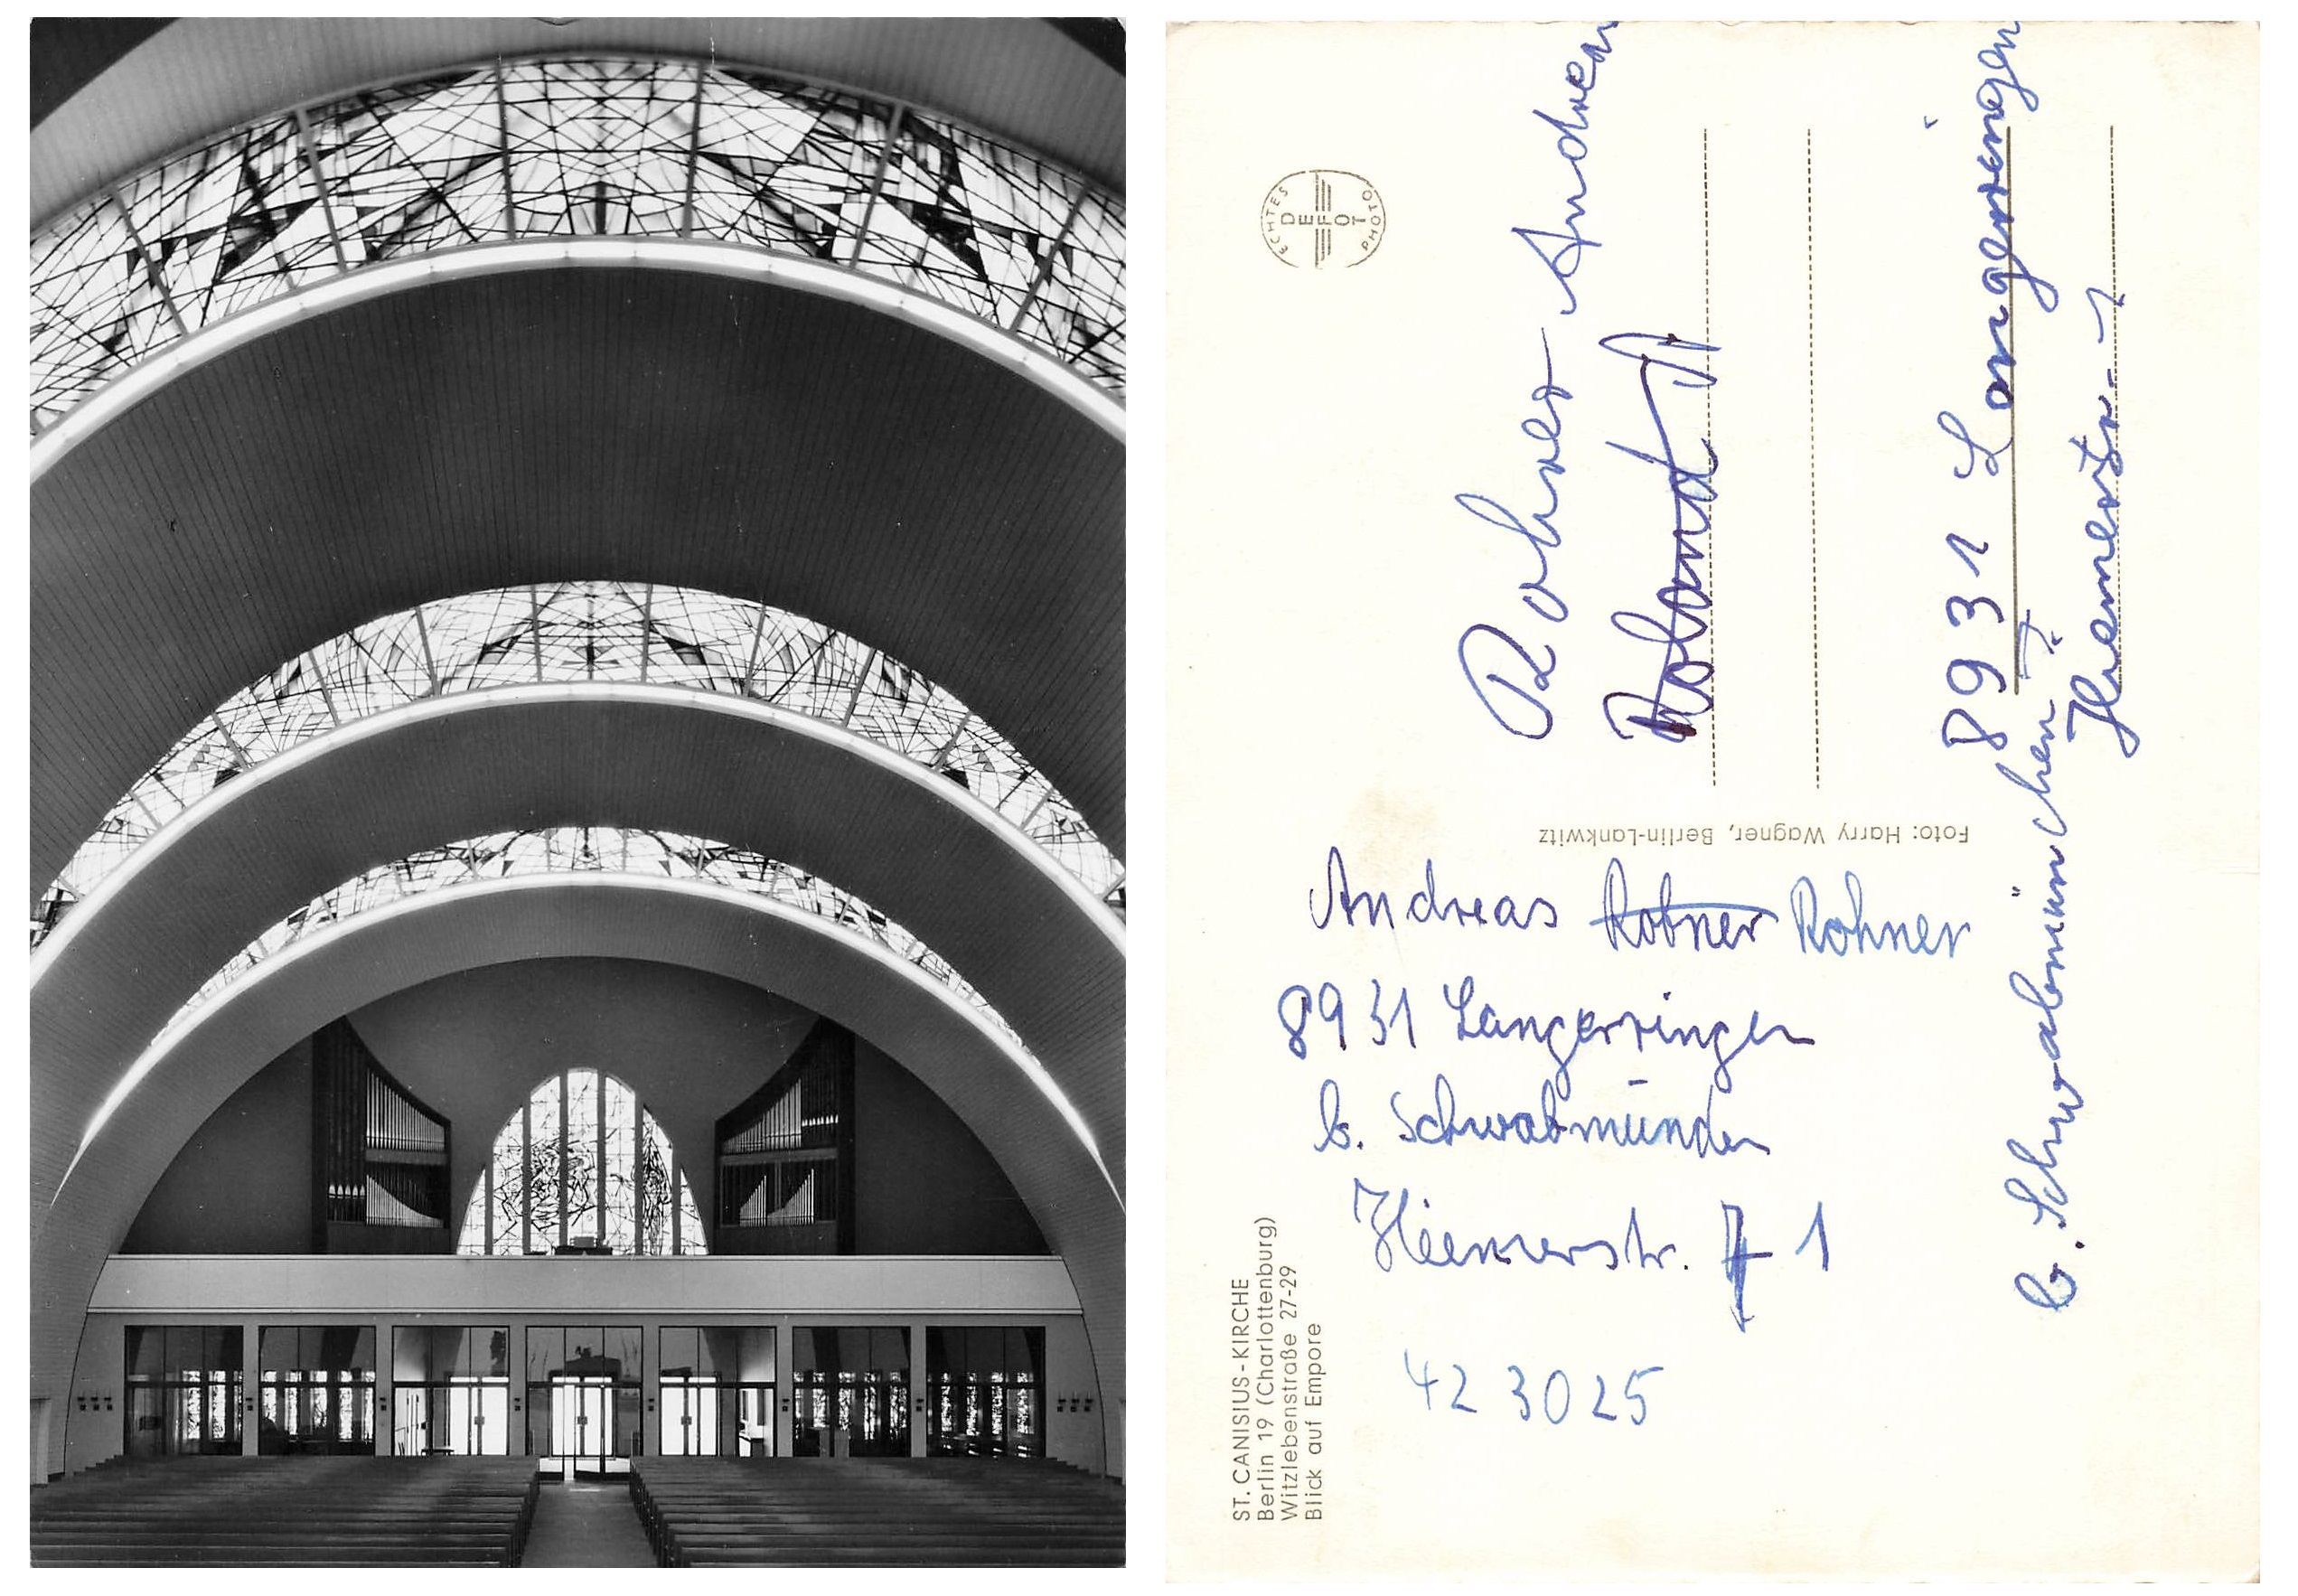 ST. CANISIUS-KIRCHE
Berlin 19 (Charlottenburg)
Witzlebenstraße 27-29
Blick auf Empore
ECHTES
DEFOT
PHOTO
Foto: Harry Wagner, Berlin-Lankwitz
Rohner Andreas
8931 Langerringen
b. Schwabmünchen
Hiemerstr. 1
Andreas Robner Rohner
8931 Langerringen
b. Schwabmünden
Hiemerstr. 7 1
42 30 25